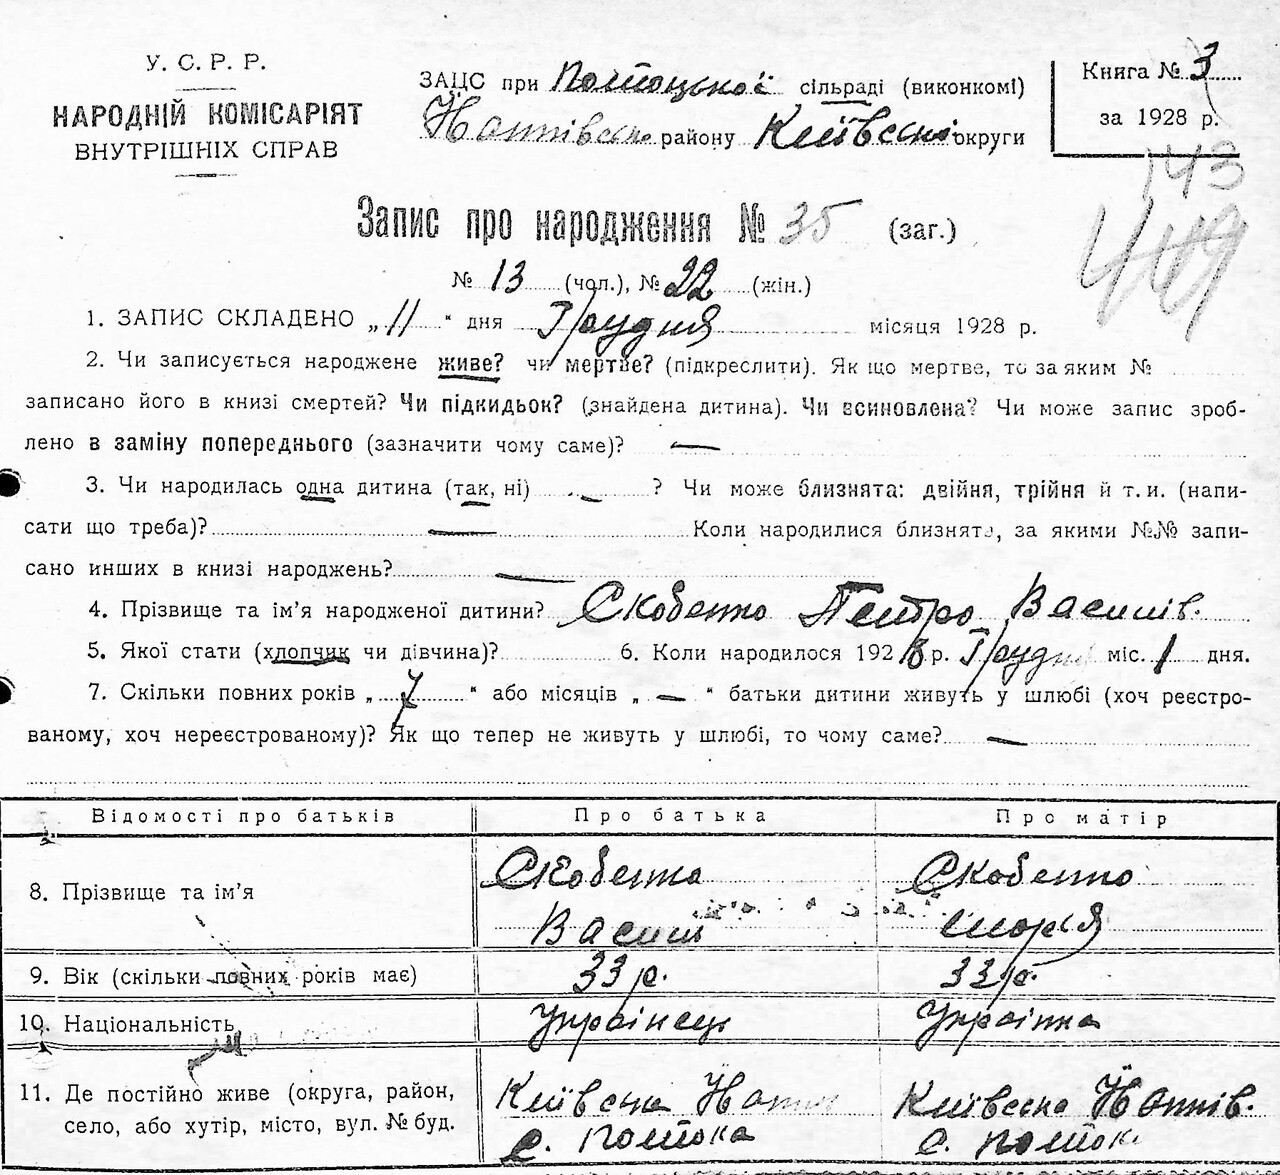 У. С. Р. Р.
НАРОДНІЙ КОМІСАРІЯТ
ВНУТРІШНІХ СПРАВ
ЗАЦС при Потоцької сільраді (виконкомі)
району Київської округи
Книга № 3
за 1928 р.
143
449
Запис про народження № 35 (заг.)
№ 13 (чол.), № 22 (жін.)
1. ЗАПИС СКЛАДЕНО „ 11 “ дня Грудня місяця 1928 р.
2. Чи записується народжене живе? чи мертве? (підкреслити). Як що мертве, то за яким №
записано його в книзі смертей? Чи підкидьок? (знайдена дитина). Чи всиновлена? Чи може запис зроб-
лено в заміну попереднього (зазначити чому саме)? —
3. Чи народилась одна дитина (так, ні) — ? Чи може близнята: двійня, трійня й т. и. (напи-
сати що треба)? — Коли народилися близнята, за якими №№ запи-
сано инших в книзі народжень? —
4. Прізвище та ім’я народженої дитини? Скобенко Петро Василів.
5. Якої стати (хлопчик чи дівчина)? 6. Коли народилося 1928 р. Грудня міс. 1 дня.
7. Скільки повних років „ 7 “ або місяців „ — “ батьки дитини живуть у шлюбі (хоч реєстро-
ваному, хоч нереєстрованому)? Як що тепер не живуть у шлюбі, то чому саме? —
Відомості про батьків Про батька Про матір
8. Прізвище та ім’я Скобенко Василь Скобенко Марія
9. Вік (скільки повних років має) 33 р. 33 р.
10. Національність Українець Українка
11. Де постійно живе (округа, район, Київська Київська
село, або хутір, місто, вул. № буд. с. Потока с. Поток